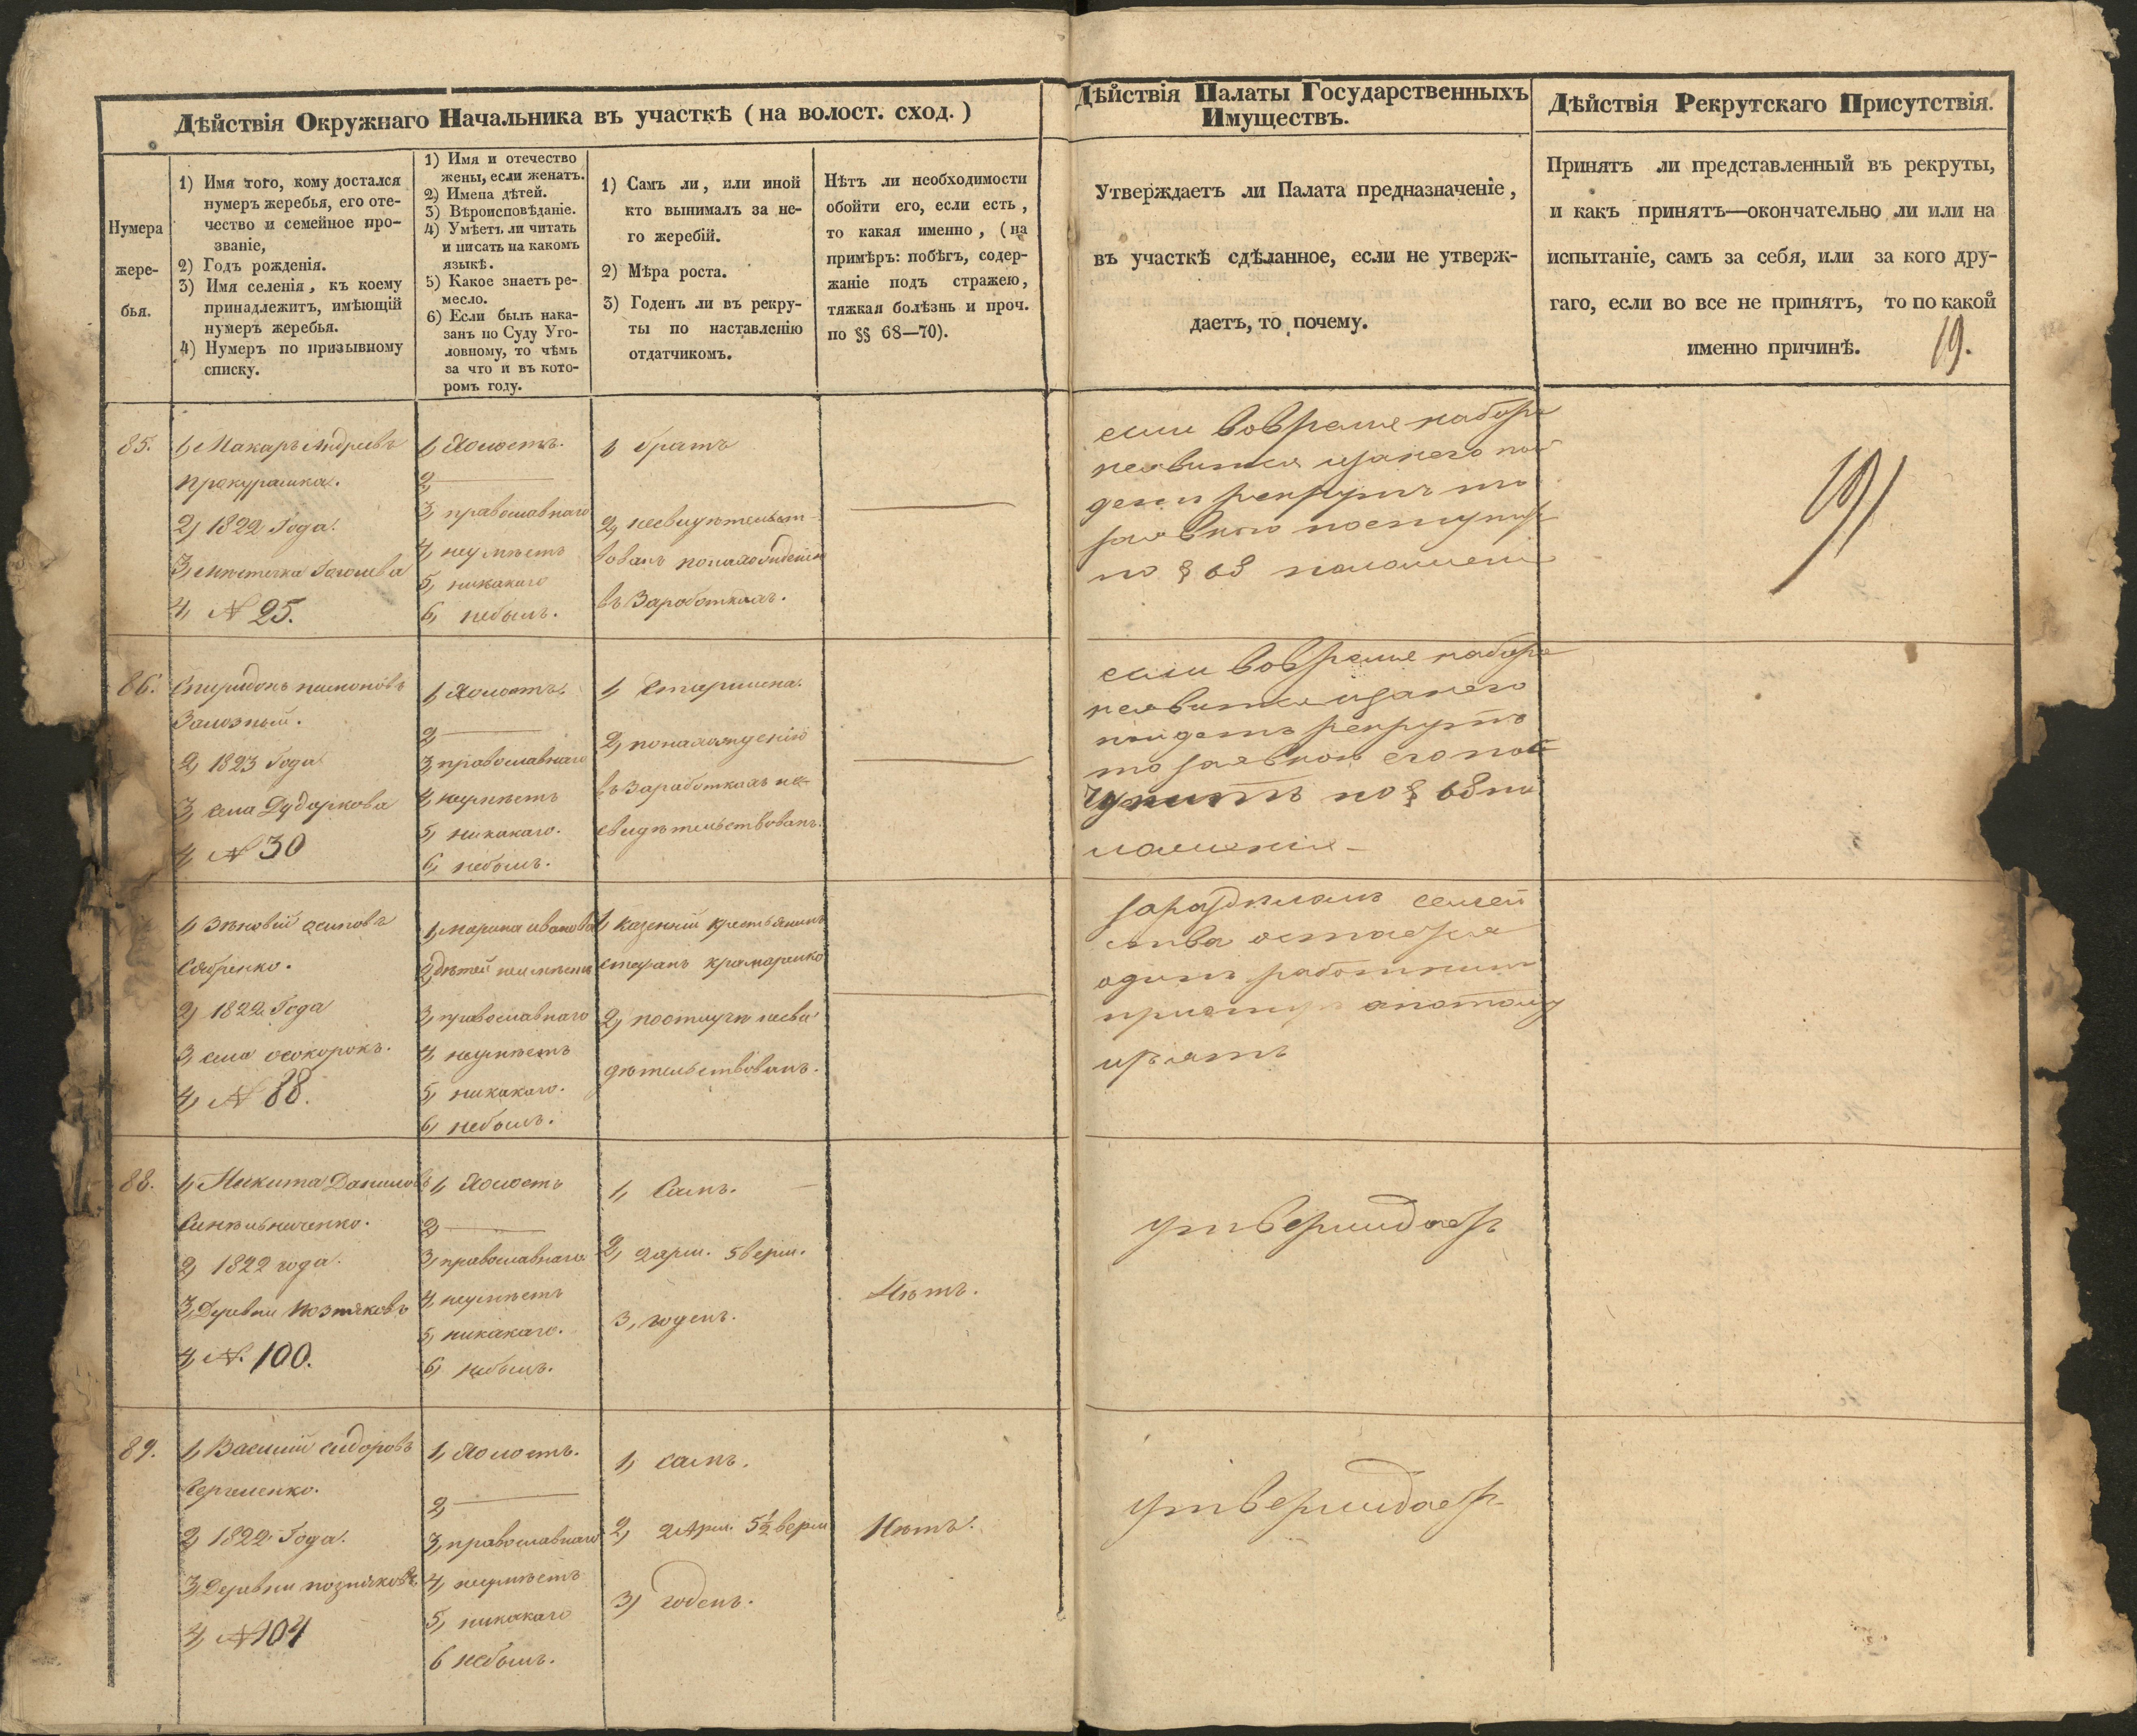 Дѣйствія Окружнаго Начальника въ участкѣ (на волост. сход.)
Дѣйствія Палаты Государственныхъ
Имуществъ.
Дѣйствія Рекрутскаго Присутствія.
Нумера
жере-
бья.
1) Имя того, кому достался
нумеръ жеребья, его оте-
чество и семейное про-
званіе,
2) Годъ рожденія.
3) Имя селенія, къ коему
принадлежитъ, имѣющій
нумеръ жеребья.
4) Нумеръ по призывному
списку.
1) Имя и отечество
жены, если женатъ.
2) Имена дѣтей.
3) Вѣроисповѣданіе.
4) Умѣетъ ли читать
и писать на какомъ
языкѣ.
5) Какое знаетъ ре-
месло.
6) Если былъ нака-
занъ по Суду Уго-
ловному, то чѣмъ
за что и въ кото-
ромъ году.
1) Самъ ли, или иной
кто вынималъ за не-
го жеребій.
2) Мѣра роста.
3) Годенъ ли въ рекру-
ты по наставленію
отдатчикомъ.
Нѣтъ ли необходимости
обойти его, если есть,
то какая именно, (на
примѣръ: побѣгъ, содер-
жаніе подъ стражею,
тяжкая болѣзнь и проч.
по §§ 68—70).
Утверждаетъ ли Палата предназначеніе,
въ участкѣ сдѣланное, если не утверж-
даетъ, то почему.
Принятъ ли представленный въ рекруты,
и какъ принятъ—окончательно ли или на
испытаніе, самъ за себя, или за кого дру-
гаго, если во все не принятъ, то по какой
именно причинѣ.
19.
85.
1, Макаръ Андреевъ
Прокурашка.
2, 1822 Года.
3, мѣстечка Гоголева
4, N 25.
1, Холостъ.
2,
3, православнаго
4, неумѣетъ
5, никакаго
6, небылъ.
1 братъ
2, несвидѣтельст-
вованъ понахождению
въ Заработкахъ.
если вовремя набора
неявится изанего пой
детъ рекрутъ то
по § 68
19
86.
Спиридонъ
Залозный.
2, 1823 Года
3, села Дударкова
4, N 30
1, Холостъ.
2,
3, православнаго
4, неумѣетъ
5, никакаго.
6, небылъ.
1, Старшина.
2, понахожденію
въ Заработкахъ не-
свидѣтельствованъ.
если вовремя набора
неявится изанего
пойдетъ рекрутъ
то его пос
по § 68 по
ложенія
1, Зѣновій Осиповъ
Сябренко.
2, 1822 Года
3, села осокорокъ.
4, N 88.
1, Марина Иванова
2, дѣтей неимѣетъ
3, православнаго
4, неумѣетъ
5, никакаго.
6, небылъ.
1, казенный крестьянинъ
Стефанъ крамаренко
2, несви
дѣтельствованъ.
семей
ства остается
одинъ работникъ
апотому
изъятъ
88.
1, Никита Даниловъ
Синельниченко.
2, 1822 года.
3, Деревни Позняковъ
4, N. 100.
1, Холостъ
2,
3, православнаго
4, неумѣетъ
5, никакаго.
6, небылъ.
1, Самъ.
2, 2 арш. 5 верш.
3, годенъ.
Нѣтъ.
утверждаетъ
89.
1, Василий Сидоровъ
Сергиенко.
2, 1822 Года.
3, Деревни позняковъ
4, N 104
1, Холостъ.
2,
3, православнаго
4, неумѣетъ
5, никакаго
6 небылъ.
1, самъ.
2, 2 арш. 5½ верш
3, годенъ.
Нѣтъ.
утверждаетъ